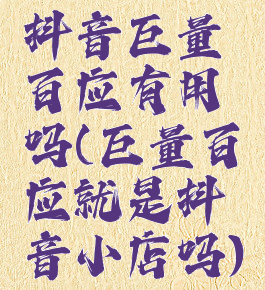 抖音巨量
百应有用
吗(巨量百
应就是抖
音小店吗)